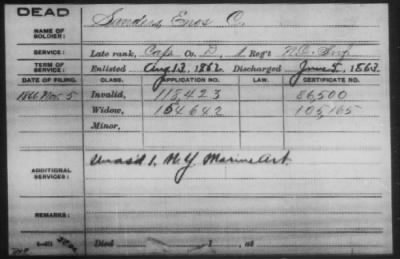 DEAD
NAME OF SOLDIER: Sanders, Enos C.
SERVICE: Late rank, Cap Co. D, 1 Reg't N.C. Inf.
TERM OF SERVICE: Enlisted Aug 13, 1862 Discharged June 5, 1863
DATE OF FILING. CLASS. APPLICATION NO. LAW. CERTIFICATE NO.
1866 Nov. 5 Invalid, 115,423 86,500
Widow, 154,642 105,165
Minor,
ADDITIONAL SERVICES: Unas'd 1. N.Y. Marine Art.
REMARKS:
Died 1 , at